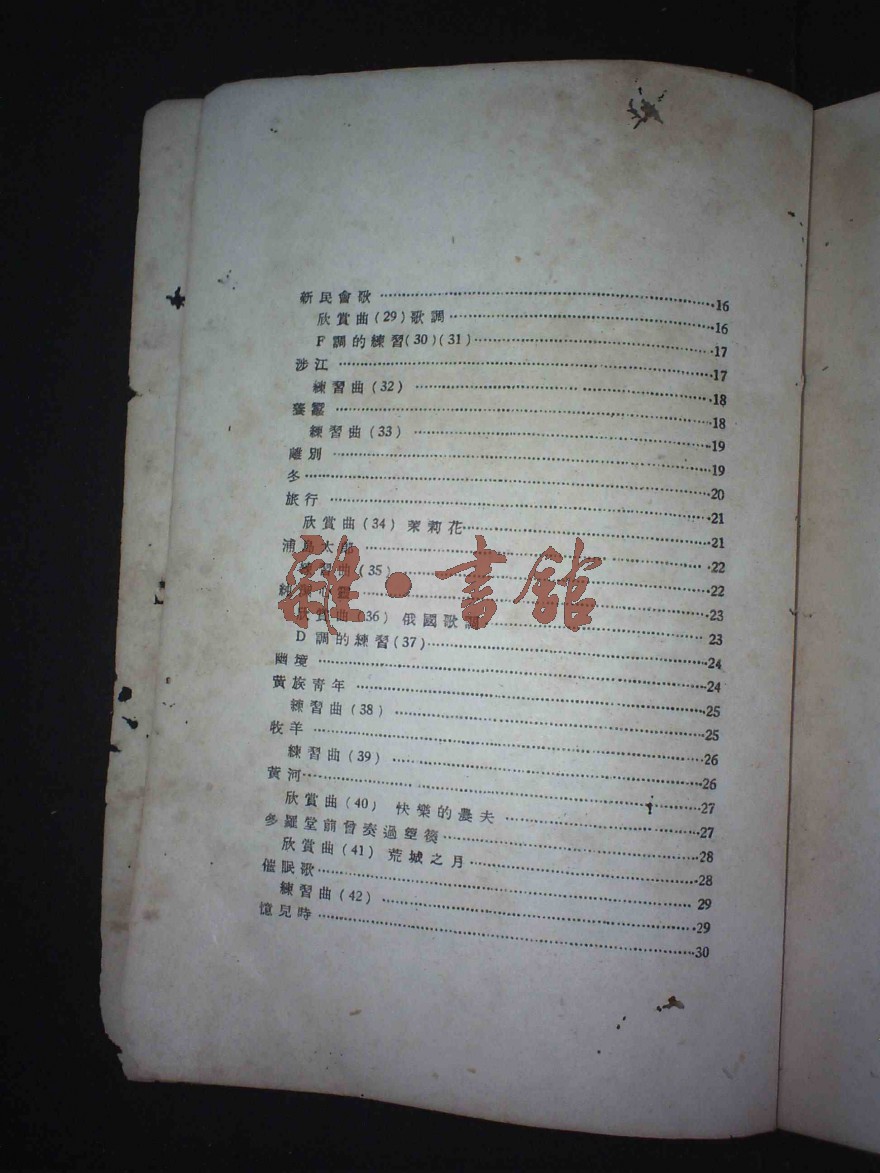 新民會歌……16
欣賞曲(29)歌調……16
F調的練習(30)(31)……17
涉江……17
練習曲(32)……18
……18
練習曲(33)……19
離別……19
冬……20
旅行……21
欣賞曲(34) 茉莉花……21
浦島太郎……22
練習曲(35)……22
……23
欣賞曲(36) 俄國歌調……23
D調的練習(37)……24
幽境……24
黃族青年……25
練習曲(38)……25
牧羊……26
練習曲(39)……26
黃河……27
欣賞曲(40) 快樂的農夫……27
多羅堂前曾奏過……28
欣賞曲(41) 荒城之月……28
催眠歌……29
練習曲(42)……29
憶兒時……30
雜·書館